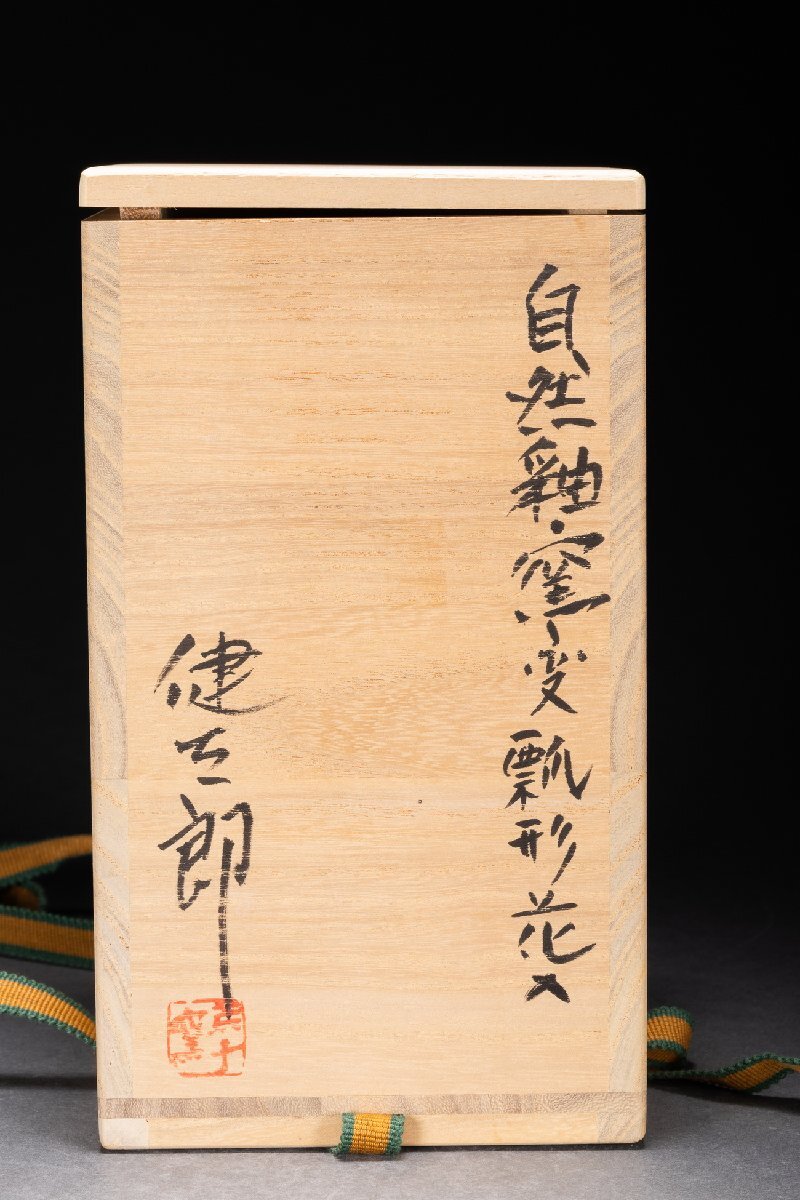 自然釉窯変瓢形花入
健太郎